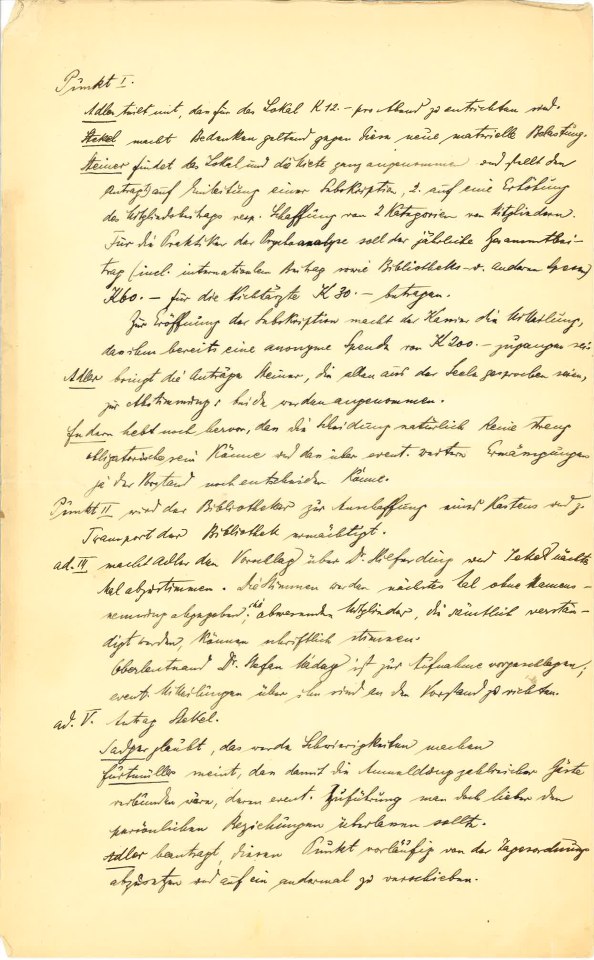 Punkt I.
Adler teilt mit, dass für das Lokal K 12.– pro Abend zu entrichten sind.
Stekel macht Bedenken geltend gegen diese neue materielle Belastung.
Steiner findet das Lokal und die Miete ganz angenommen und stellt den
Antrag 1) auf Einleitung einer Subskription, 2. auf eine Erhöhung
des Mitgliedsbeitrags resp. Schaffung von 2 Kategorien von Mitgliedern.
Für die Praktiker der Psychoanalyse soll der jährliche Gesammtbei-
trag (incl. internationalem Beitrag sowie Bibliotheks- u. anderen Spesen)
K 60.– für die Nichtärzte K 30.– betragen.
Zur Eröffnung der Subskription macht der Kassier die Mitteilung,
dass ihm bereits eine anonyme Spende von K 200.– zugegangen sei.
Adler bringt die Anträge Steiner, die allen aus der Seele gesprochen seien,
zur Abstimmung: beide werden angenommen.
Federn hebt noch hervor, dass die Scheidung natürlich keine streng
obligatorische sein könne und dass über event. weitere Ermässigungen
ja der Vorstand noch entscheiden könne.
Punkt II wird der Bibliothekar zur Anschaffung eines Kastens und z.
Transport der Bibliothek ermächtigt.
ad. III macht Adler den Vorschlag über Dr. Hilferding und nächstes
Mal abzustimmen. Die Stimmen werden nächstes Mal ohne Namens-
nennung abgegeben; abwesende Mitglieder, die sämtlich verstän-
digt werden, können schriftlich stimmen.
Oberleutnant Dr. Stefan Máday ist zur Aufnahme vorgeschlagen;
event. Mitteilungen über ihn sind an den Vorstand zu richten.
ad. V. Antrag Stekel.
Sadger glaubt, das werde Schwierigkeiten machen
Furtmüller meint, dass damit die Anmeldung zahlreicher Gäste
verbunden wäre, deren event. Zuführung man doch lieber den
persönlichen Beziehungen überlassen sollte.
Adler beantragt, diesen Punkt vorläufig von der Tagesordnung
abzusetzen und auf ein andermal zu verschieben.